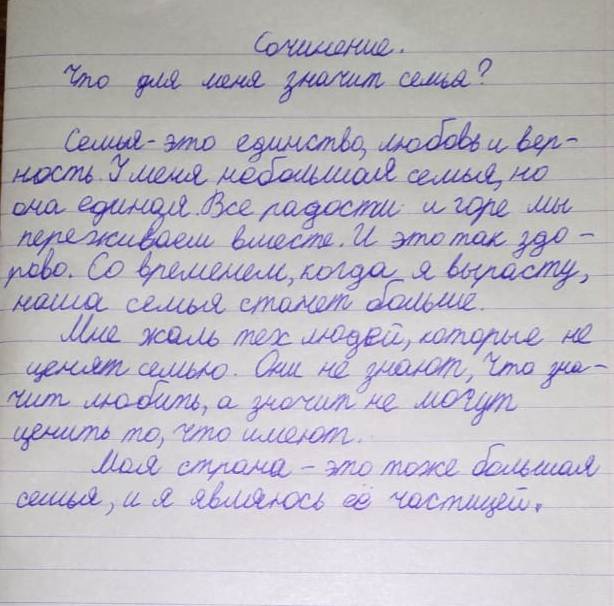 Сочинение.
Что для меня значит семья?
Семья - это единство, любовь и вер-
ность. У меня небольшая семья, но
она единая. Все радости и горе мы
переживаем вместе. И это так здо-
рово. Со временем, когда я вырасту,
наша семья станет больше.
Мне жаль тех людей, которые не
ценят семью. Они не знают, что зна-
чит любить, а значит не могут
ценить то, что имеют.
Моя страна - это тоже большая
семья, и я являюсь её частицей.